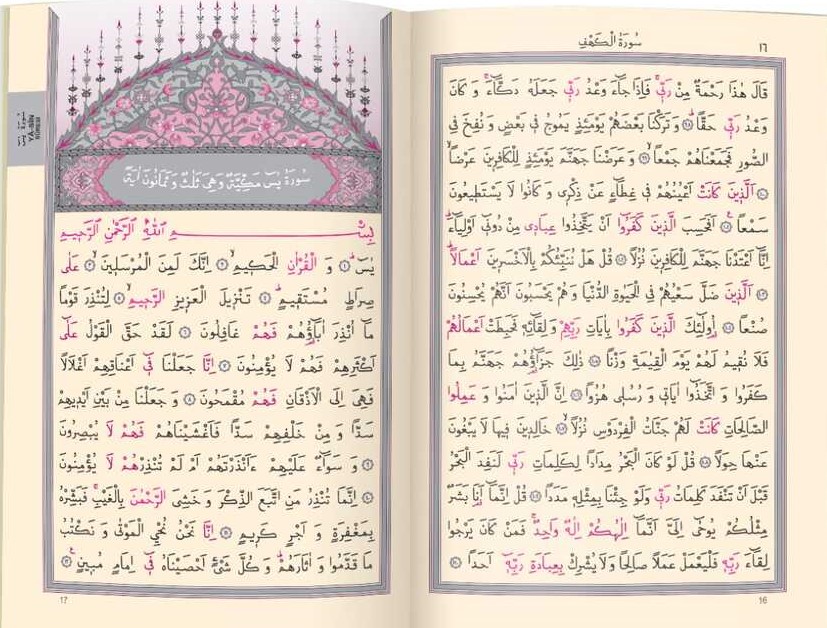 ١٦
سُورَةُ الْكَهْفِ
قَالَ هٰذَا رَحْمَةٌ مِنْ رَبّٖى فَاِذَا جَٓاءَ وَعْدُ رَبّٖى جَعَلَهُ دَكَّٓاءَ وَ كَانَ
وَعْدُ رَبّٖى حَقًّا ﴿٩٨﴾ وَ تَرَكْنَا بَعْضَهُمْ يَوْمَئِذٍ يَمُوجُ فٖى بَعْضٍ وَ نُفِخَ فِى
الصُّورِ فَجَمَعْنَاهُمْ جَمْعًا ﴿٩٩﴾ وَ عَرَضْنَا جَهَنَّمَ يَوْمَئِذٍ لِلْكَافِرٖينَ عَرْضًا
﴿١٠٠﴾ اَلَّذٖينَ كَانَتْ اَعْيُنُهُمْ فٖى غِطَٓاءٍ عَنْ ذِكْرٖى وَ كَانُوا لَا يَسْتَطٖيعُونَ
سَمْعًا ﴿١٠١﴾ اَفَحَسِبَ الَّذٖينَ كَفَرُٓوا اَنْ يَتَّخِذُوا عِبَادٖى مِنْ دُونٖٓى اَوْلِيَٓاءَ
اِنَّٓا اَعْتَدْنَا جَهَنَّمَ لِلْكَافِرٖينَ نُزُلًا ﴿١٠٢﴾ قُلْ هَلْ نُنَبِّئُكُمْ بِالْاَخْسَرٖينَ اَعْمَالًا
﴿١٠٣﴾ اَلَّذٖينَ ضَلَّ سَعْيُهُمْ فِى الْحَيٰوةِ الدُّنْيَا وَ هُمْ يَحْسَبُونَ اَنَّهُمْ يُحْسِنُونَ
صُنْعًا ﴿١٠٤﴾ اُولٰٓئِكَ الَّذٖينَ كَفَرُوا بِاٰيَاتِ رَبِّهِمْ وَ لِقَٓائِهٖ فَحَبِطَتْ اَعْمَالُهُمْ
فَلَا نُقٖيمُ لَهُمْ يَوْمَ الْقِيٰمَةِ وَزْنًا ﴿١٠٥﴾ ذٰلِكَ جَزَٓاؤُهُمْ جَهَنَّمُ بِمَا
كَفَرُوا وَ اتَّخَذُٓوا اٰيَاتٖى وَ رُسُلٖى هُزُوًا ﴿١٠٦﴾ اِنَّ الَّذٖينَ اٰمَنُوا وَ عَمِلُوا
الصَّالِحَاتِ كَانَتْ لَهُمْ جَنَّاتُ الْفِرْدَوْسِ نُزُلًا ﴿١٠٧﴾ خَالِدٖينَ فٖيهَا لَا يَبْغُونَ
عَنْهَا حِوَلًا ﴿١٠٨﴾ قُلْ لَوْ كَانَ الْبَحْرُ مِدَادًا لِكَلِمَاتِ رَبّٖى لَنَفِدَ الْبَحْرُ
قَبْلَ اَنْ تَنْفَدَ كَلِمَاتُ رَبّٖى وَلَوْ جِئْنَا بِمِثْلِهٖ مَدَدًا ﴿١٠٩﴾ قُلْ اِنَّمَٓا اَنَا بَشَرٌ
مِثْلُكُمْ يُوحٰٓى اِلَىَّ اَنَّمَٓا اِلٰهُكُمْ اِلٰهٌ وَاحِدٌ فَمَنْ كَانَ يَرْجُوا
لِقَٓاءَ رَبِّهٖ فَلْيَعْمَلْ عَمَلًا صَالِحًا وَلَا يُشْرِكْ بِعِبَادَةِ رَبِّهٖٓ اَحَدًا ﴿١١٠﴾
16
سورة يس
YÂ-SÎN
SÛRESİ
سُورَةُ يٰسٓ مَكِّيَّةٌ وَهِىَ ثَلٰثٌ وَ ثَمَانُونَ اٰيَةً
بِسْمِ اللّٰهِ الرَّحْمٰنِ الرَّحٖيمِ
يٰسٓ ﴿١﴾ وَ الْقُرْاٰنِ الْحَكٖيمِ ﴿٢﴾ اِنَّكَ لَمِنَ الْمُرْسَلٖينَ ﴿٣﴾ عَلٰى
صِرَاطٍ مُسْتَقٖيمٍ ﴿٤﴾ تَنْزٖيلَ الْعَزٖيزِ الرَّحٖيمِ ﴿٥﴾ لِتُنْذِرَ قَوْمًا
مَٓا اُنْذِرَ اٰبَٓاؤُهُمْ فَهُمْ غَافِلُونَ ﴿٦﴾ لَقَدْ حَقَّ الْقَوْلُ عَلٰٓى
اَكْثَرِهِمْ فَهُمْ لَا يُؤْمِنُونَ ﴿٧﴾ اِنَّا جَعَلْنَا فٖٓى اَعْنَاقِهِمْ اَغْلَالًا
فَهِىَ اِلَى الْاَذْقَانِ فَهُمْ مُقْمَحُونَ ﴿٨﴾ وَ جَعَلْنَا مِنْ بَيْنِ اَيْدٖيهِمْ
سَدًّا وَ مِنْ خَلْفِهِمْ سَدًّا فَاَغْشَيْنَاهُمْ فَهُمْ لَا يُبْصِرُونَ
﴿٩﴾ وَ سَوَٓاءٌ عَلَيْهِمْ ءَاَنْذَرْتَهُمْ اَمْ لَمْ تُنْذِرْهُمْ لَا يُؤْمِنُونَ
﴿١٠﴾ اِنَّمَا تُنْذِرُ مَنِ اتَّبَعَ الذِّكْرَ وَ خَشِىَ الرَّحْمٰنَ بِالْغَيْبِ فَبَشِّرْهُ
بِمَغْفِرَةٍ وَ اَجْرٍ كَرٖيمٍ ﴿١١﴾ اِنَّا نَحْنُ نُحْيِى الْمَوْتٰى وَ نَكْتُبُ
مَا قَدَّمُوا وَ اٰثَارَهُمْ وَ كُلَّ شَىْءٍ اَحْصَيْنَاهُ فٖٓى اِمَامٍ مُبٖينٍ ﴿١٢﴾
17